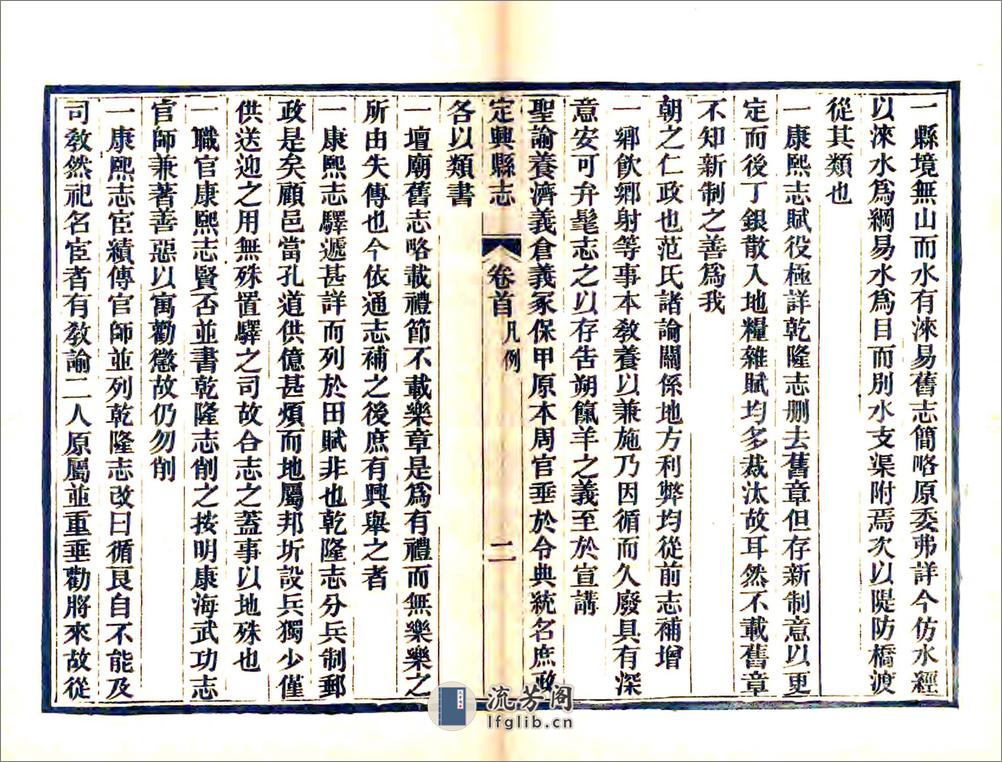 一縣境無山而水有淶易舊志簡略原委弗詳今仿水經
以淶水爲綱易水爲目而別水支渠附焉次以隄防橋渡
從其類也
一康熙志賦役極詳乾隆志删去舊章但存新制意以更
定而後丁銀散入地糧雜賦均多裁汰故耳然不載舊章
不知新制之善爲我
朝之仁政也范氏諸論關係地方利弊均從前志補增
一鄉飲鄉射等事本敎養以兼施乃因循而久廢具有深
意安可弁髦志之以存告朔餼羊之義至於宣講
聖諭養濟義倉義冢保甲原本周官垂於令典統名庶政
定興縣志
卷首
凡例
二
各以類書
一壇廟舊志略載禮節不載樂章是爲有禮而無樂樂之
所由失傳也今依通志補之後庶有興舉之者
一康熙志驛遞甚詳而列於田賦非也乾隆志分兵制郵
政是矣顧邑當孔道供億甚煩而地屬邦圻設兵獨少僅
供送迎之用無殊置驛之司故合志之蓋事以地殊也
一職官康熙志賢否並書乾隆志削之按明康海武功志
官師兼著善惡以寓勸懲故仍勿削
一康熙志宦績傳官師並列乾隆志改曰循良自不能及
司敎然祀名宦者有敎諭二人原屬並重垂勸將來故從
流芳閣
lfglib.cn